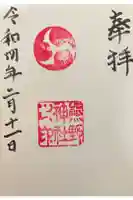 奉拝
神社
令和四年二月十一日